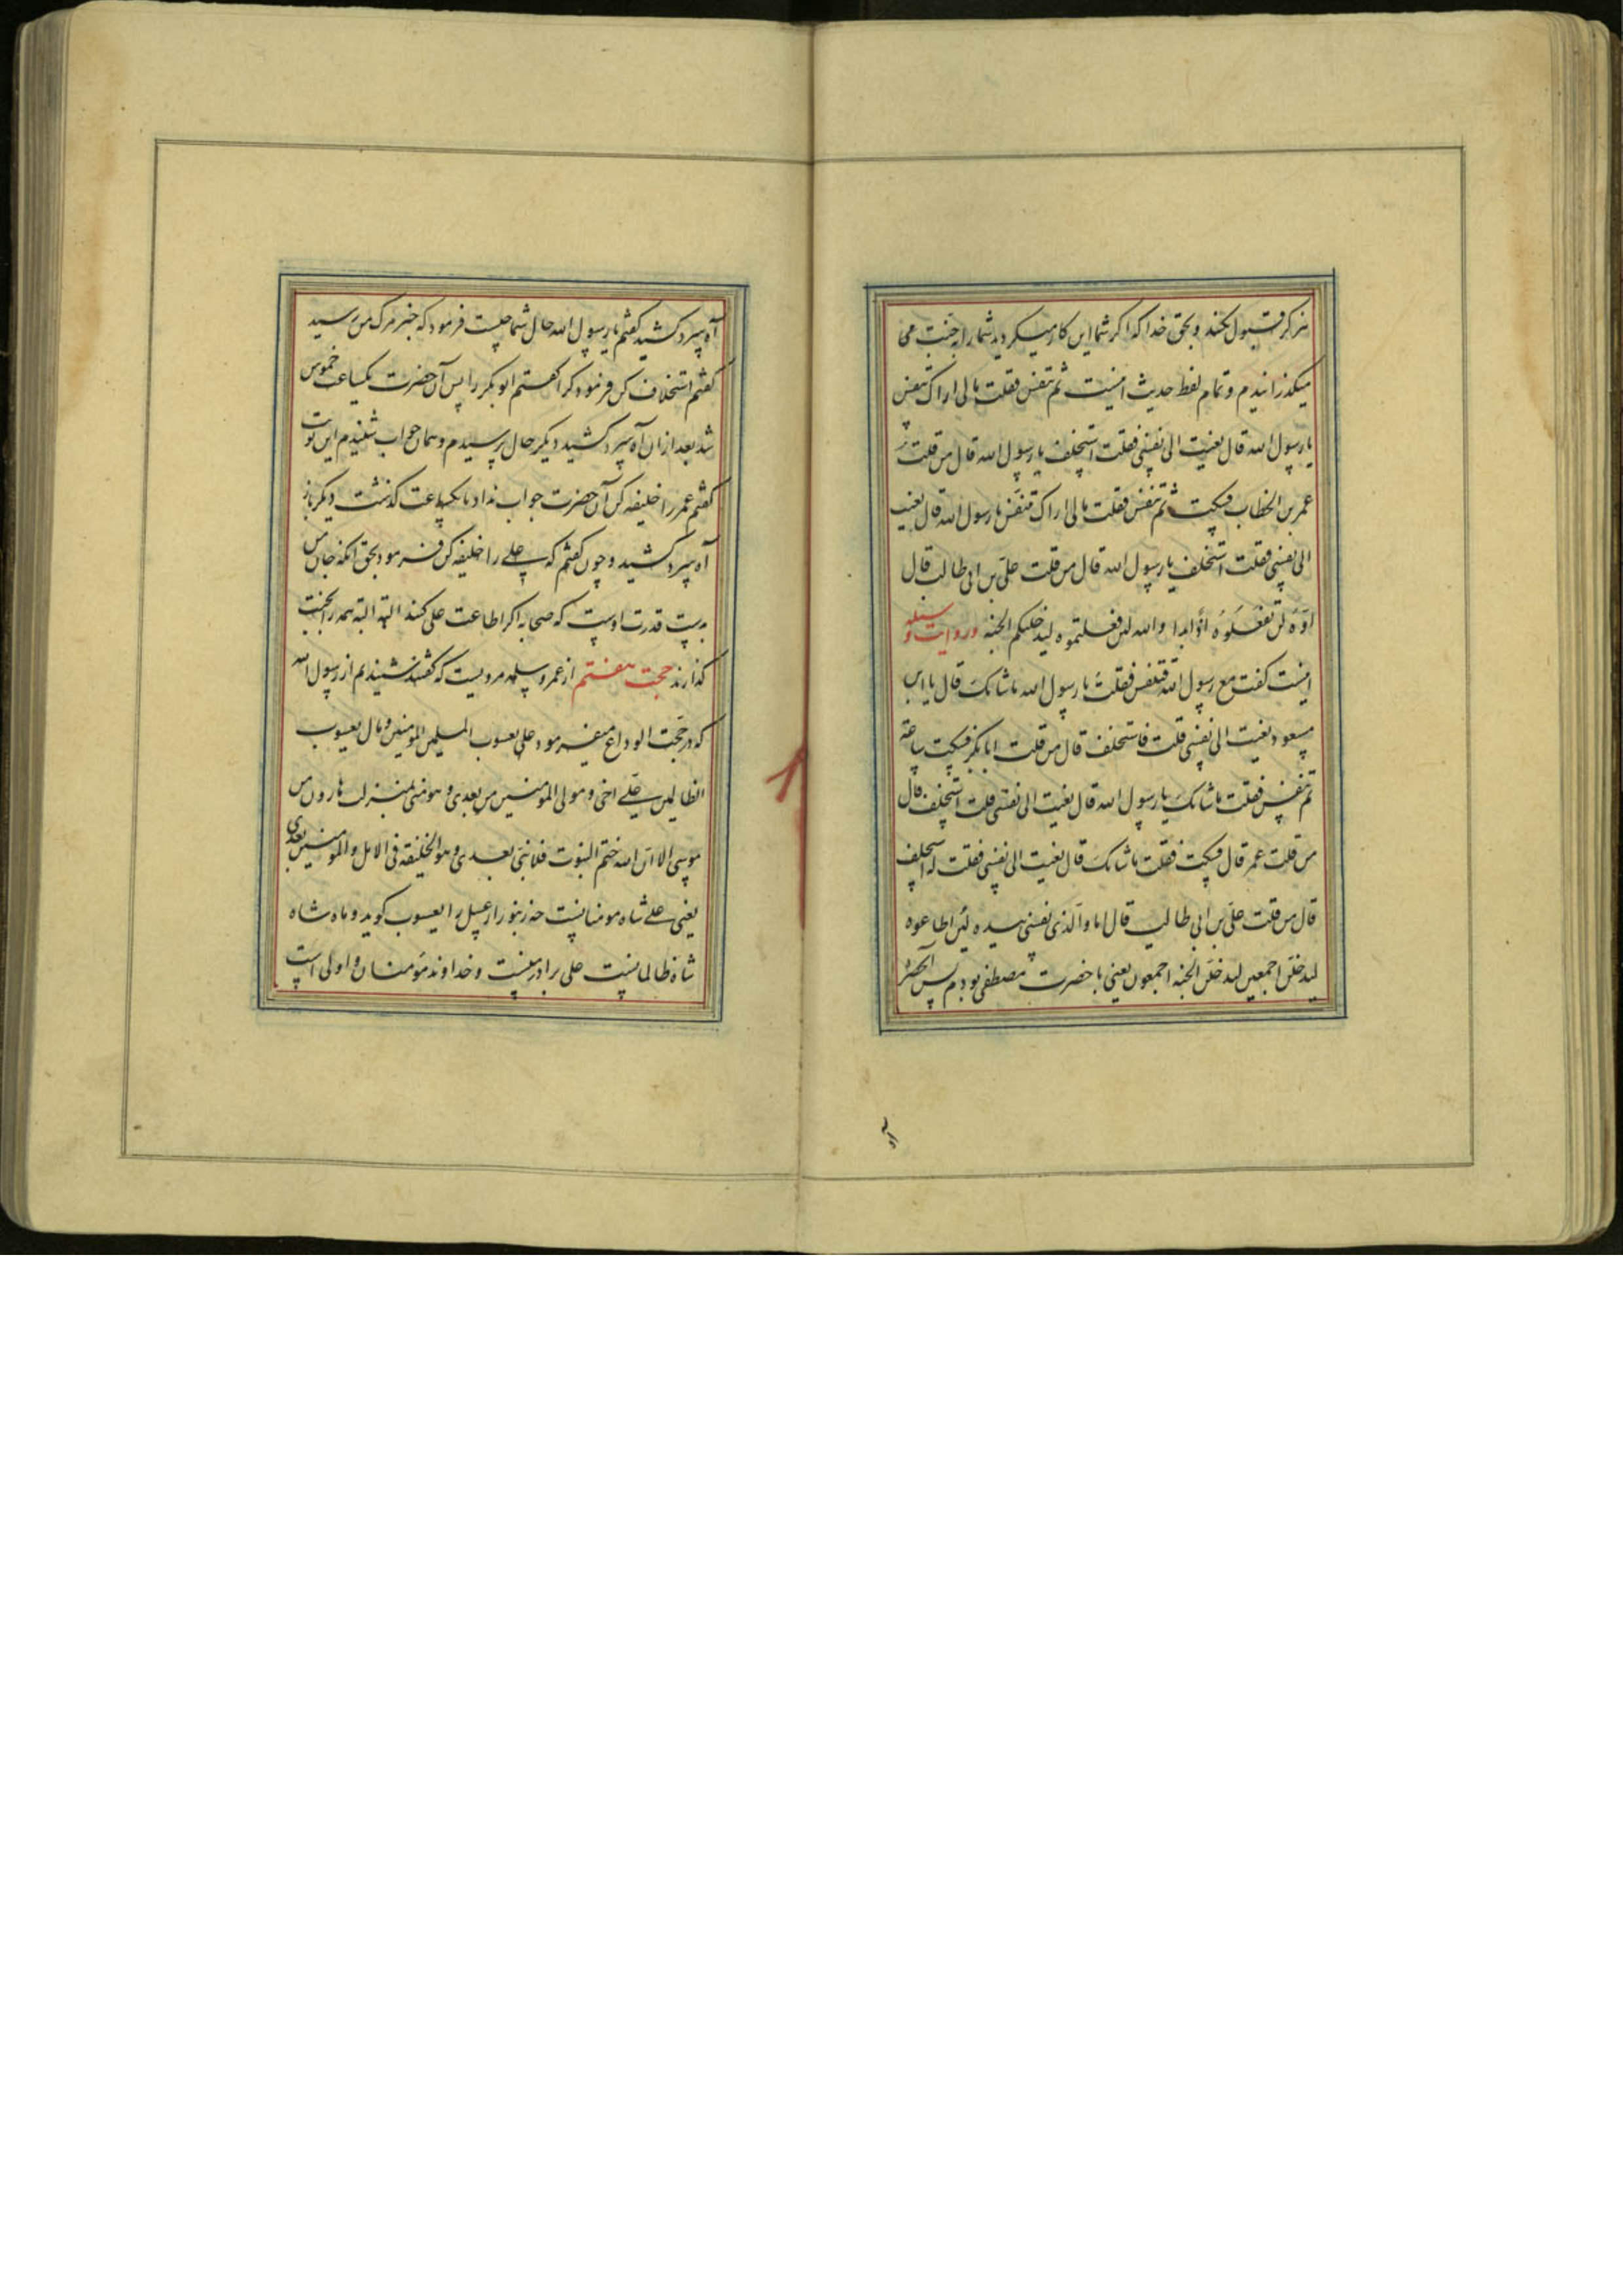 هرگز قبول نکنند و بحق خدا که اگر شما این کار میکردید شما را به جنت می
میگذرانیدم و تمام لفظ حدیث اینست ثم تنفس فقلت مالی اراک تنفس
یا رسول الله قال نعیت الی نفسی فقلت استخلف یا رسول الله قال من قلت
عمر بن الخطاب فسکت ثم تنفس فقلت مالی اراک تنفس یا رسول الله قال نعیت
الی نفسی فقلت استخلف یا رسول الله قال من قلت علی بن ابی طالب قال
اوّه لن تفعلوه اذا ابدا والله لئن فعلتموه لیدخلنکم الجنه و روایت
اینست گفت مع رسول الله فتنفس فقلت یا رسول الله ما شانک قال یا ابن
مسعود نعیت الی نفسی قلت فاستخلف قال من قلت ابا بکر فسکت ساعة
ثم تنفس فقلت ما شانک یا رسول الله قال نعیت الی نفسی قلت استخلف قال
من قلت عمر قال فسکت فقلت ما شانک قال نعیت الی نفسی فقلت له استخلف
قال من قلت علی بن ابی طالب قال اما والذی نفسی بیده لئن اطاعوه
لیدخلن اجمعین لیدخلن الجنه اجمعون یعنی با حضرت مصطفی بودم پس آنحضرت
آه
آه سرد کشید گفتم یا رسول الله حال شما چیست فرمود که خبر مرگ من رسید
گفتم استخلاف کن فرمود کرا گفتم ابو بکر را پس آن حضرت یکساعت خموش
شد بعد از ان آه سرد کشید دیگر حال پرسیدم و همان جواب شنیدم این نوبت
گفتم عمر را خلیفه کن آن حضرت جواب نداد تا یکساعت گذشت دیگر باز
آه سرد کشید و چون گفتم که علی را خلیفه کن فرمود بحق آنکه جان من
بدست قدرت اوست که صحابه اگر اطاعت علی کنند البته البته همه را بجنت
گذارند حجت هفتم از عمر و سلمه مرویست که گفتند شنیدیم از رسول الله
که در حجت الوداع میفرمود علی یعسوب المسلمین المومنین و مال یعسوب
الظالمین علی اخی و مولی المومنین من بعدی و هو منی بمنزلت هارون من
موسی الا ان الله ختم النبوت فلا نبی بعدی و هو الخلیفة فی الاهل والمومنین بعدی
یعنی علی شاه مومنانست چه زنبور از عسل را یعسوب گوید و ماه شاه
شاه ظالمانست علی برادر منست و خداوند مومنان و اولی است